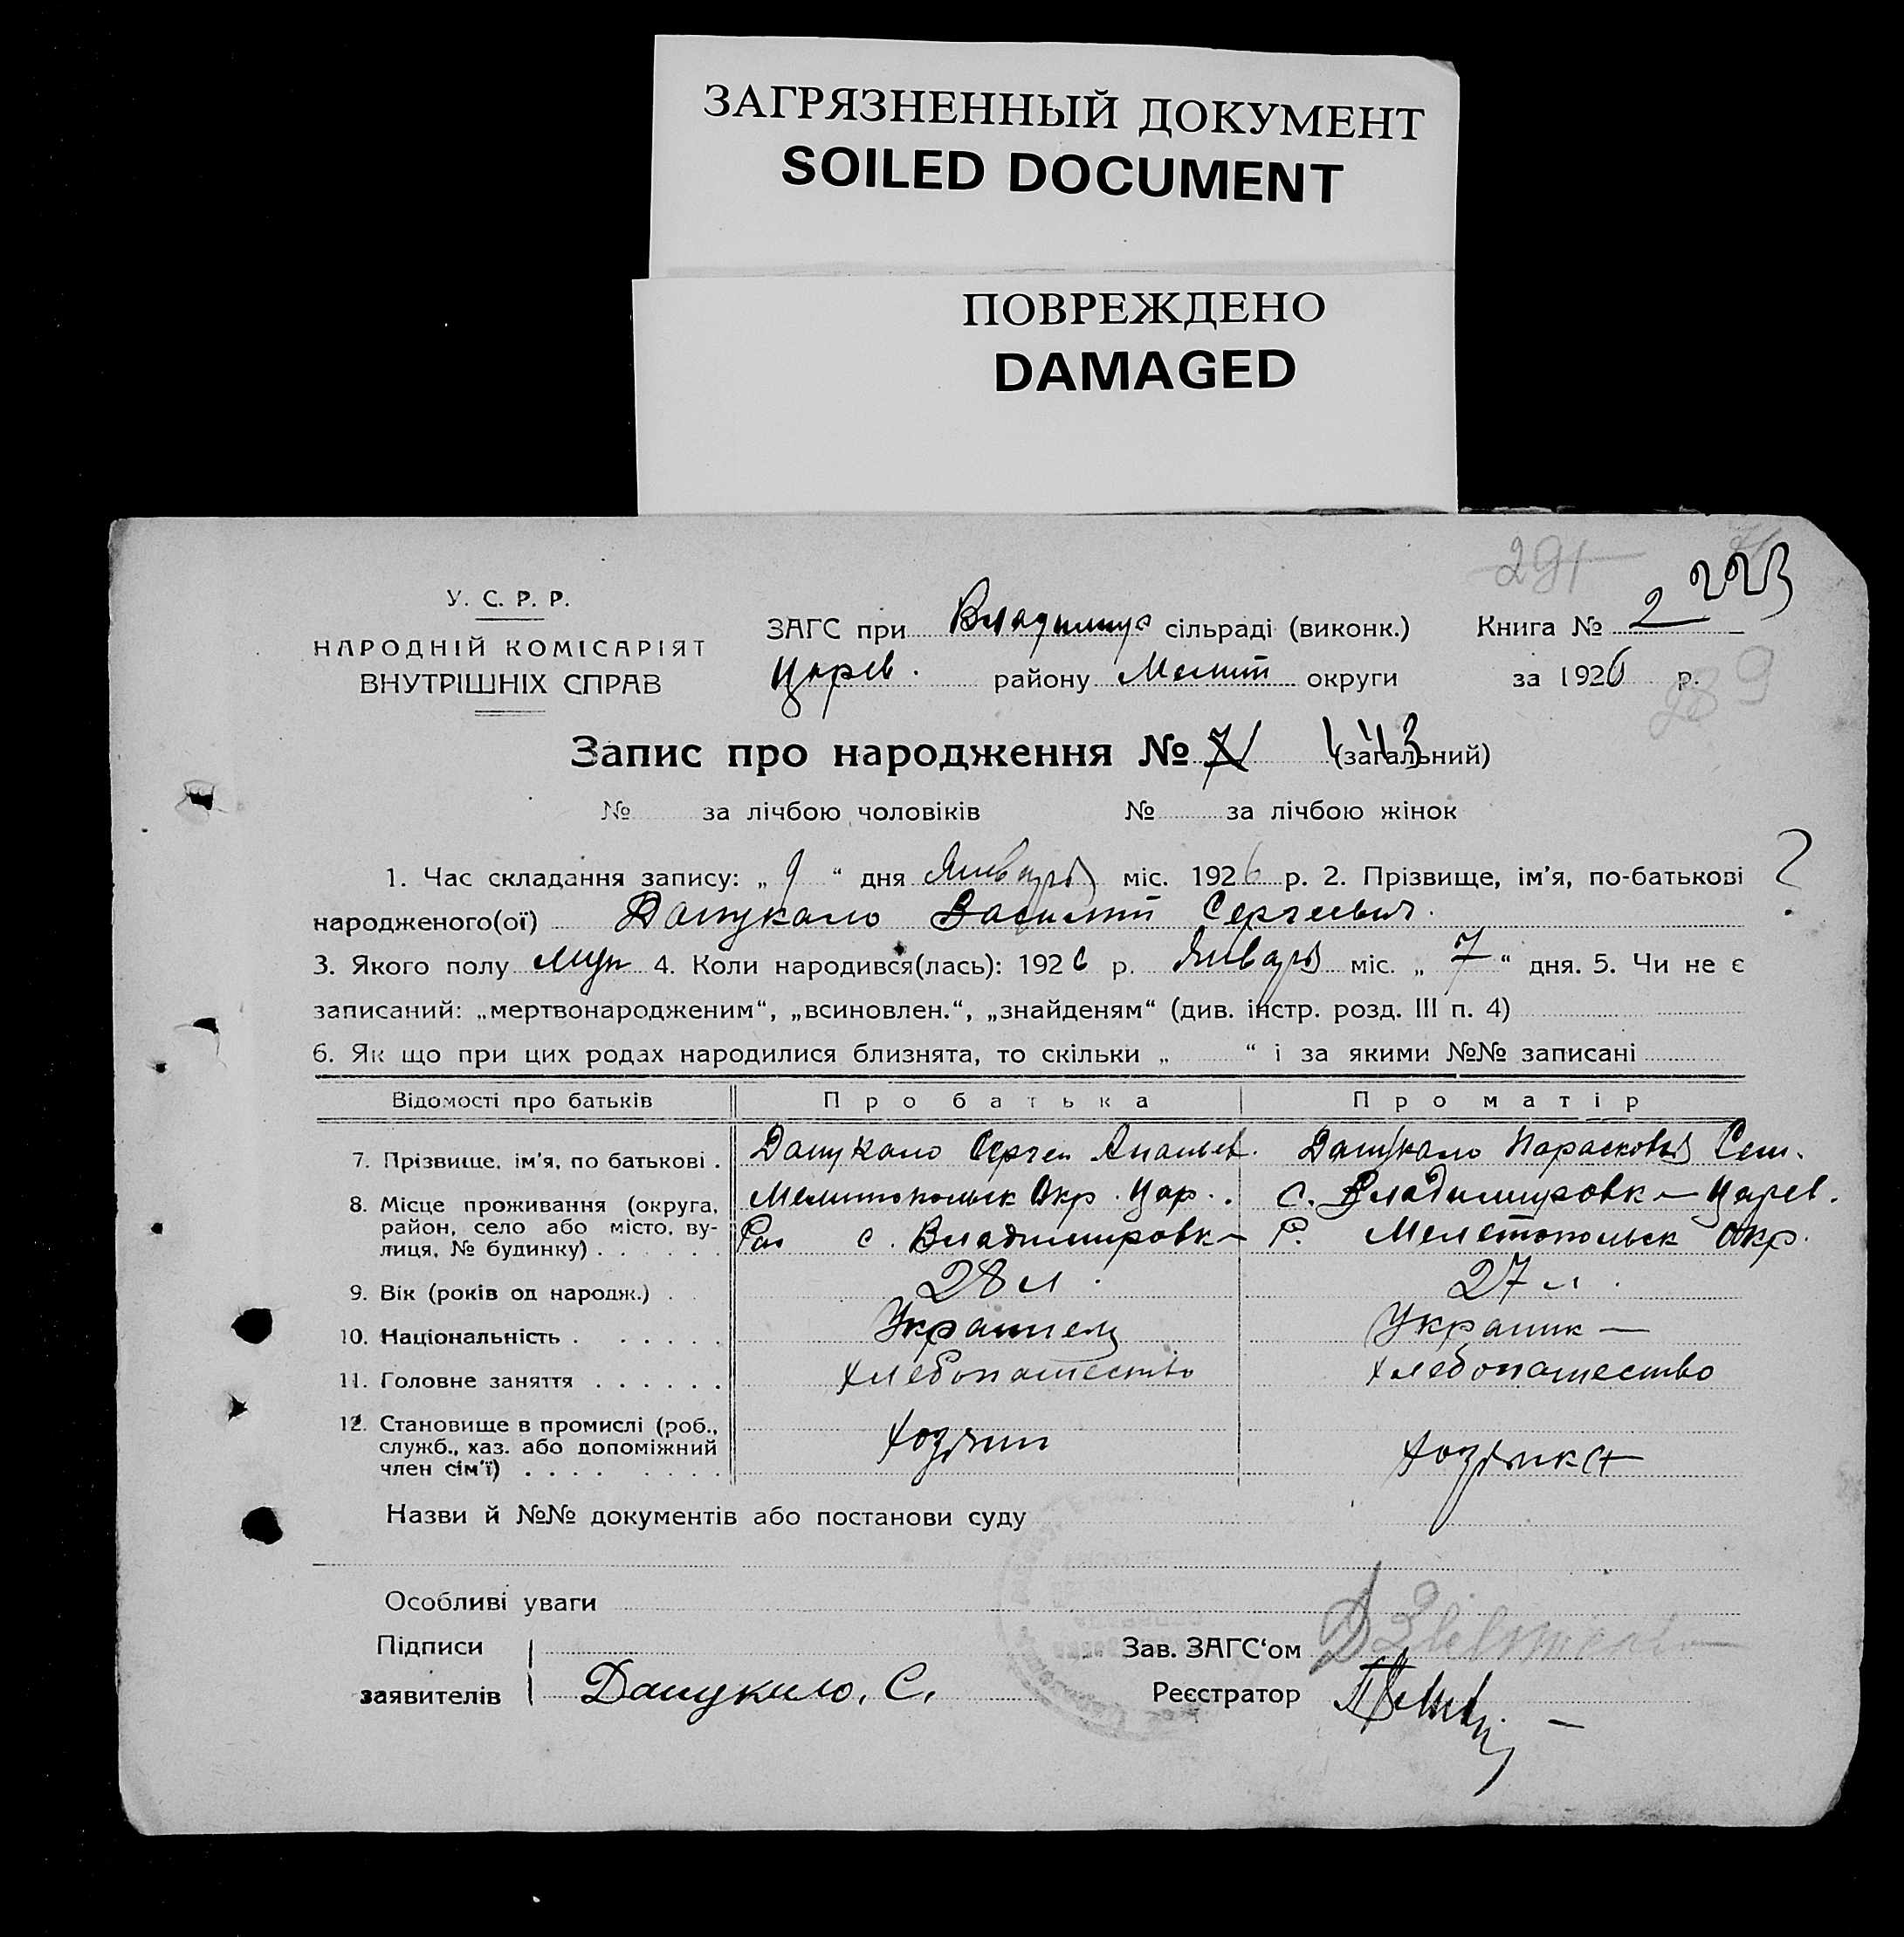 ЗАГРЯЗНЕННЫЙ ДОКУМЕНТ
SOILED DOCUMENT
ПОВРЕЖДЕНО
DAMAGED
291
223
У. С. Р. Р.
НАРОДНІЙ КОМІСАРІЯТ
ВНУТРІШНІХ СПРАВ
ЗАГС при Владимир сільраді (виконк.) Книга № 2
Царев. району Мелит округи за 1926 р.
89
Запис про народження № 71 443 (загальний)
№ за лічбою чоловіків № за лічбою жінок
1. Час складання запису: „ 9 “ дня Января міс. 1926 р. 2. Прізвище, ім'я, по-батькові ?
народженого(ої) Дацукало Василий Сергеевич.
3. Якого полу муж 4. Коли народився(лась): 1926 р. Января міс. „ 7 “ дня. 5. Чи не є
записаний: „мертвонародженим“, „всиновлен.“, „знайденям“ (див. інстр. розд. III п. 4)
6. Як що при цих родах народилися близнята, то скільки „ “ і за якими №№ записані
Відомості про батьків Про батька Про матір
7. Прізвище, ім'я, по батькові . Дацукало Сергей Ананьев. Дацукало Парасковья Сем.
8. Місце проживання (округа, Мелитопольск Окр. Цар. . с. Владимировк Царев.
район, село або місто, ву- Рай с. Владимировк Р. Мелетопольск Окр.
лиця, № будинку) . . . . . .
9. Вік (років од народж.) . . 28 л. 27 л.
10. Національність . . . . . . Украинец Украинк
11. Головне заняття . . . . . . хлебопашество хлебопашество
12. Становище в промислі (роб., хозяин хозяика
служб., хаз. або допоміжний
член сім'ї) . . . . . . . .
Назви й №№ документів або постанови суду
Особливі уваги
Підписи Зав. ЗАГС‘ом
заявителів Дацукало, С. Реєстратор